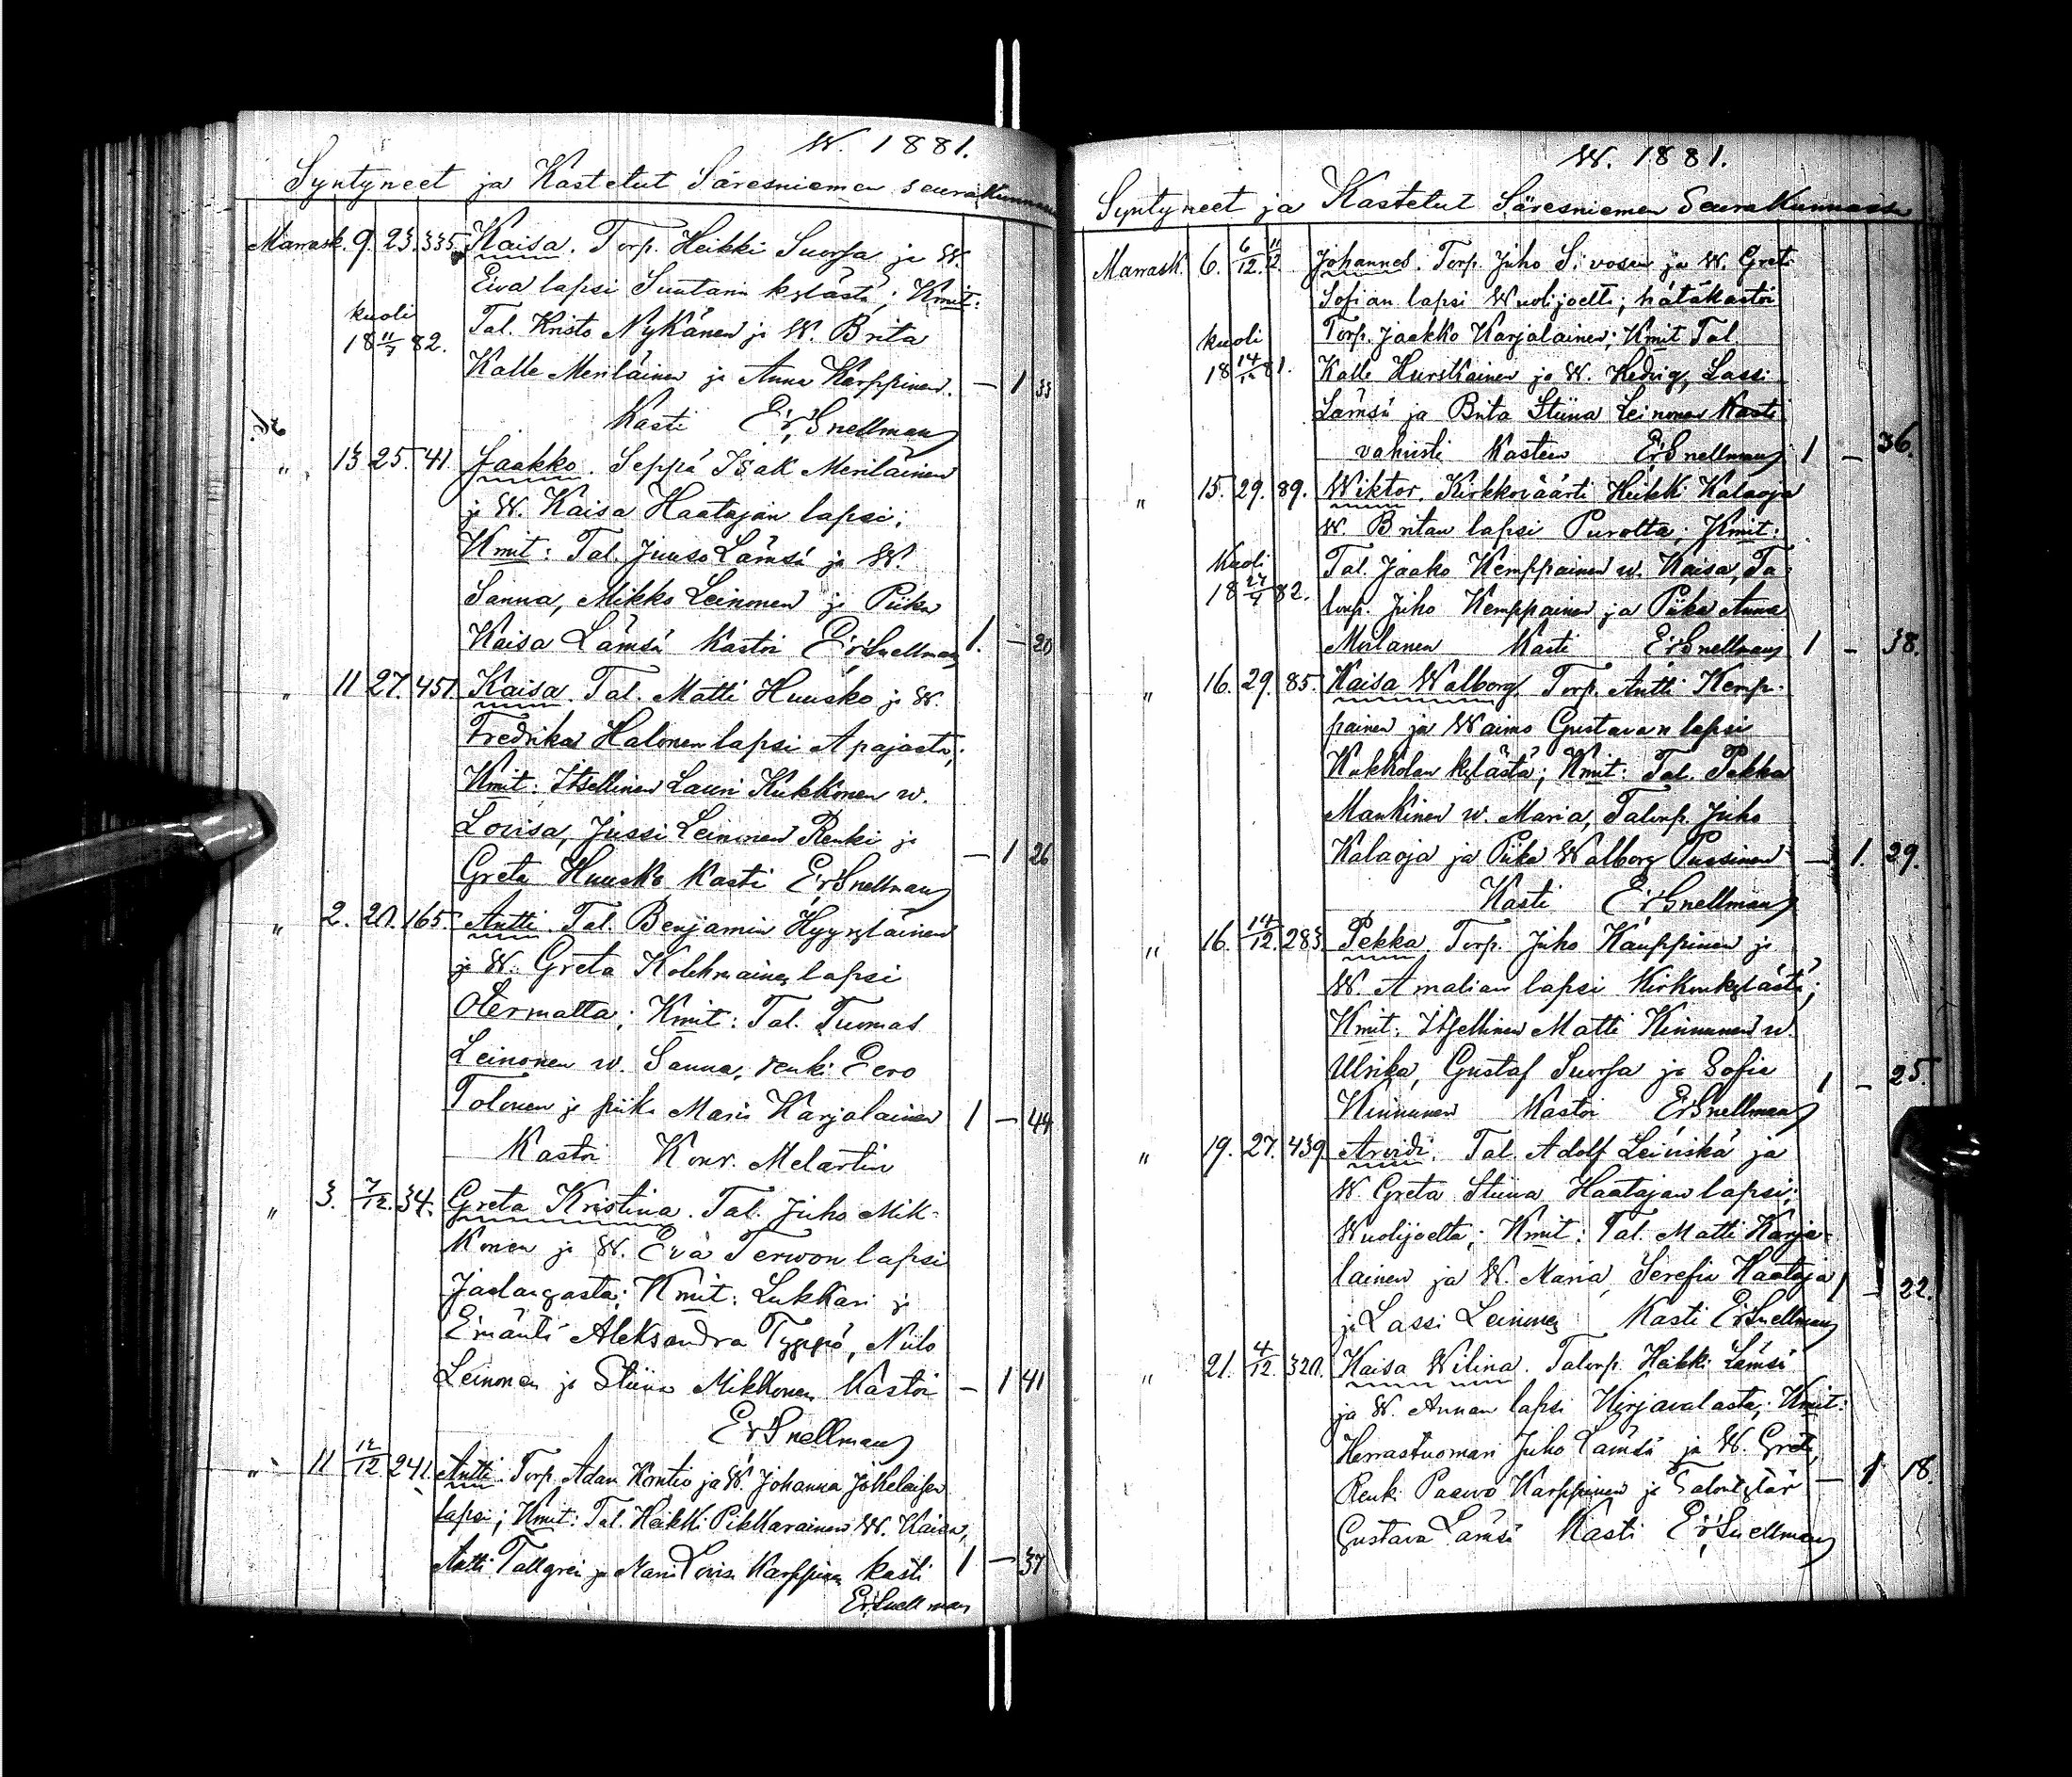 W. 1881.
Syntyneet ja Kastetut Säresniemen seurakunnassa
Marrask. 9. 23. 335. Kaisa. Torp. Heikki Suorsa ja W.
Eiva lapsi Suutarin kylästä; Kmit:
kuoli
18 11/7 82. Tal. Kristo Nykänen ja W. Brita
Kalle Meriläinen ja Anna Karppinen. — 1 33
Kasti Er. Snellman
„ 13 25. 41. Jaakko. Seppä Isak Meriläinen
ja W. Kaisa Haatajan lapsi;
Kmit: Tal. Juuso Lämsä ja W.
Sanna, Mikko Leinonen ja Piika
Kaisa Lämsä Kastoi Er. Snellman 1. — 20
„ 11 27. 451. Kaisa. Tal. Matti Huusko ja W.
Fredrika Halonen lapsi Apajasta;
Kmit: Itsellinen Lauri Kukkonen w.
Lovisa, Jussi Leinonen Renki ja
Greta Huusko Kasti Er Snellman — 1 26
„ 2. 20. 165. Antti. Tal. Benjamin Hyyryläinen
ja W. Greta Kolehmainen lapsi
Otermalta; Kmit: Tal. Tuomas
Leinonen w. Sanna, renki Eero
Tolonen ja piika Maria Karjalainen 1 — 44
Kastoi Konr. Melartin
„ 3. 7/12. 34. Greta Kristina. Tal. Juho Mik-
konen ja W. Eva Terwon lapsi
Jaalangasta; Kmit: Lukkari ja
Emäntä Aleksandra Tyyppö, Niilo
Leinonen ja Stiina Mikkonen Kastoi — 1 41
Er Snellman
„ 11 12/12 241. Antti. Torp. Adam Kontio ja W. Johanna Jokelaisen
lapsi; Kmit: Tal. Heikki Pikkarainen W. Kaisa,
Antti Tallgren ja Maria Lovisa Karppinen kasti 1 — 37
Er. Snellman
W. 1881.
Syntyneet ja Kastetut Säresniemen Seurakunnassa
Marrask. 6. 6/12. 11/12 Johannes. Torp. Juho Sivosen ja W. Greta
Sofian lapsi Wuolijoelta; hätäkastoi
kuoli Torp. Jaakko Karjalainen; Kmit Tal.
18 14/12 81. Kalle Hurskainen ja W. Hedvig, Lassi
Lämsä ja Brita Stiina Leinonen Kasti
vahvisti Kasteen Er Snellman 1 — 36.
„ 15. 29. 89. Wiktor. Kirkkoväärti Heikki Kalaoja
W. Britan lapsi Purolta; Kmit:
Kuoli Tal. Jaako Kemppainen w. Kaisa, Ta-
18 27/7 82. lonp. Juho Kemppainen ja Piika Anna
Moilanen Kasti Er Snellman 1 — 38.
„ 16. 29. 85. Kaisa Walborg. Torp. Antti Kemp-
painen ja Waimo Gustavan lapsi
Kukkolan kylästä; Kmit: Tal. Pekka
Mankinen w. Maria, Talonp. Juho
Kalaoja ja Piika Walborg Puusinen — 1. 29.
Kasti Er Snellman
„ 16. 14/12. 283. Pekka. Torp. Juho Kauppinen ja
W. Amalian lapsi Kirkonkylästä;
Kmit: Itsellinen Matti Kinnunen w.
Ulrika, Gustaf Suorsa ja Sofia
Kinnunen Kastoi Er Snellman 1 — 25.
„ 19. 27. 439 Arvidi. Tal. Adolf Leiviskä ja
W. Greta Stiina Haatajan lapsi;
Wuolijoelta; Kmit: Tal. Matti Karja-
lainen ja W. Maria, Serefia Haataja 1 — 22.
ja Lassi Leinonen Kasti Er Snellman
„ 21. 4/12. 320. Kaisa Wilina. Talonp. Heikki Lämsä
ja W. Annan lapsi Kirjavalasta; Kmit:
Herrastuomari Juho Lämsä ja W. Greta,
Renki Paavo Karppinen ja Talontytär — 1 18.
Gustava Lämsä Kasti Er Snellman